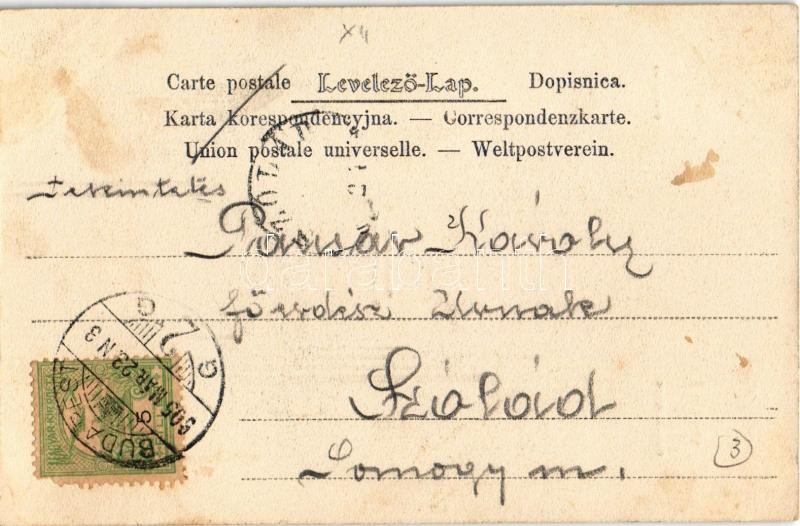 x4
Carte postale Levelező-Lap. Dopisnica.
Karta korespondencyjna. — Correspondenzkarte.
Union postale universelle. — Weltpostverein.
Tekintetes
Károly
főerdész Urnak
Szólád
Somogy m.
BUDAPEST
905 MÁR 22 N 3
darabanth
3